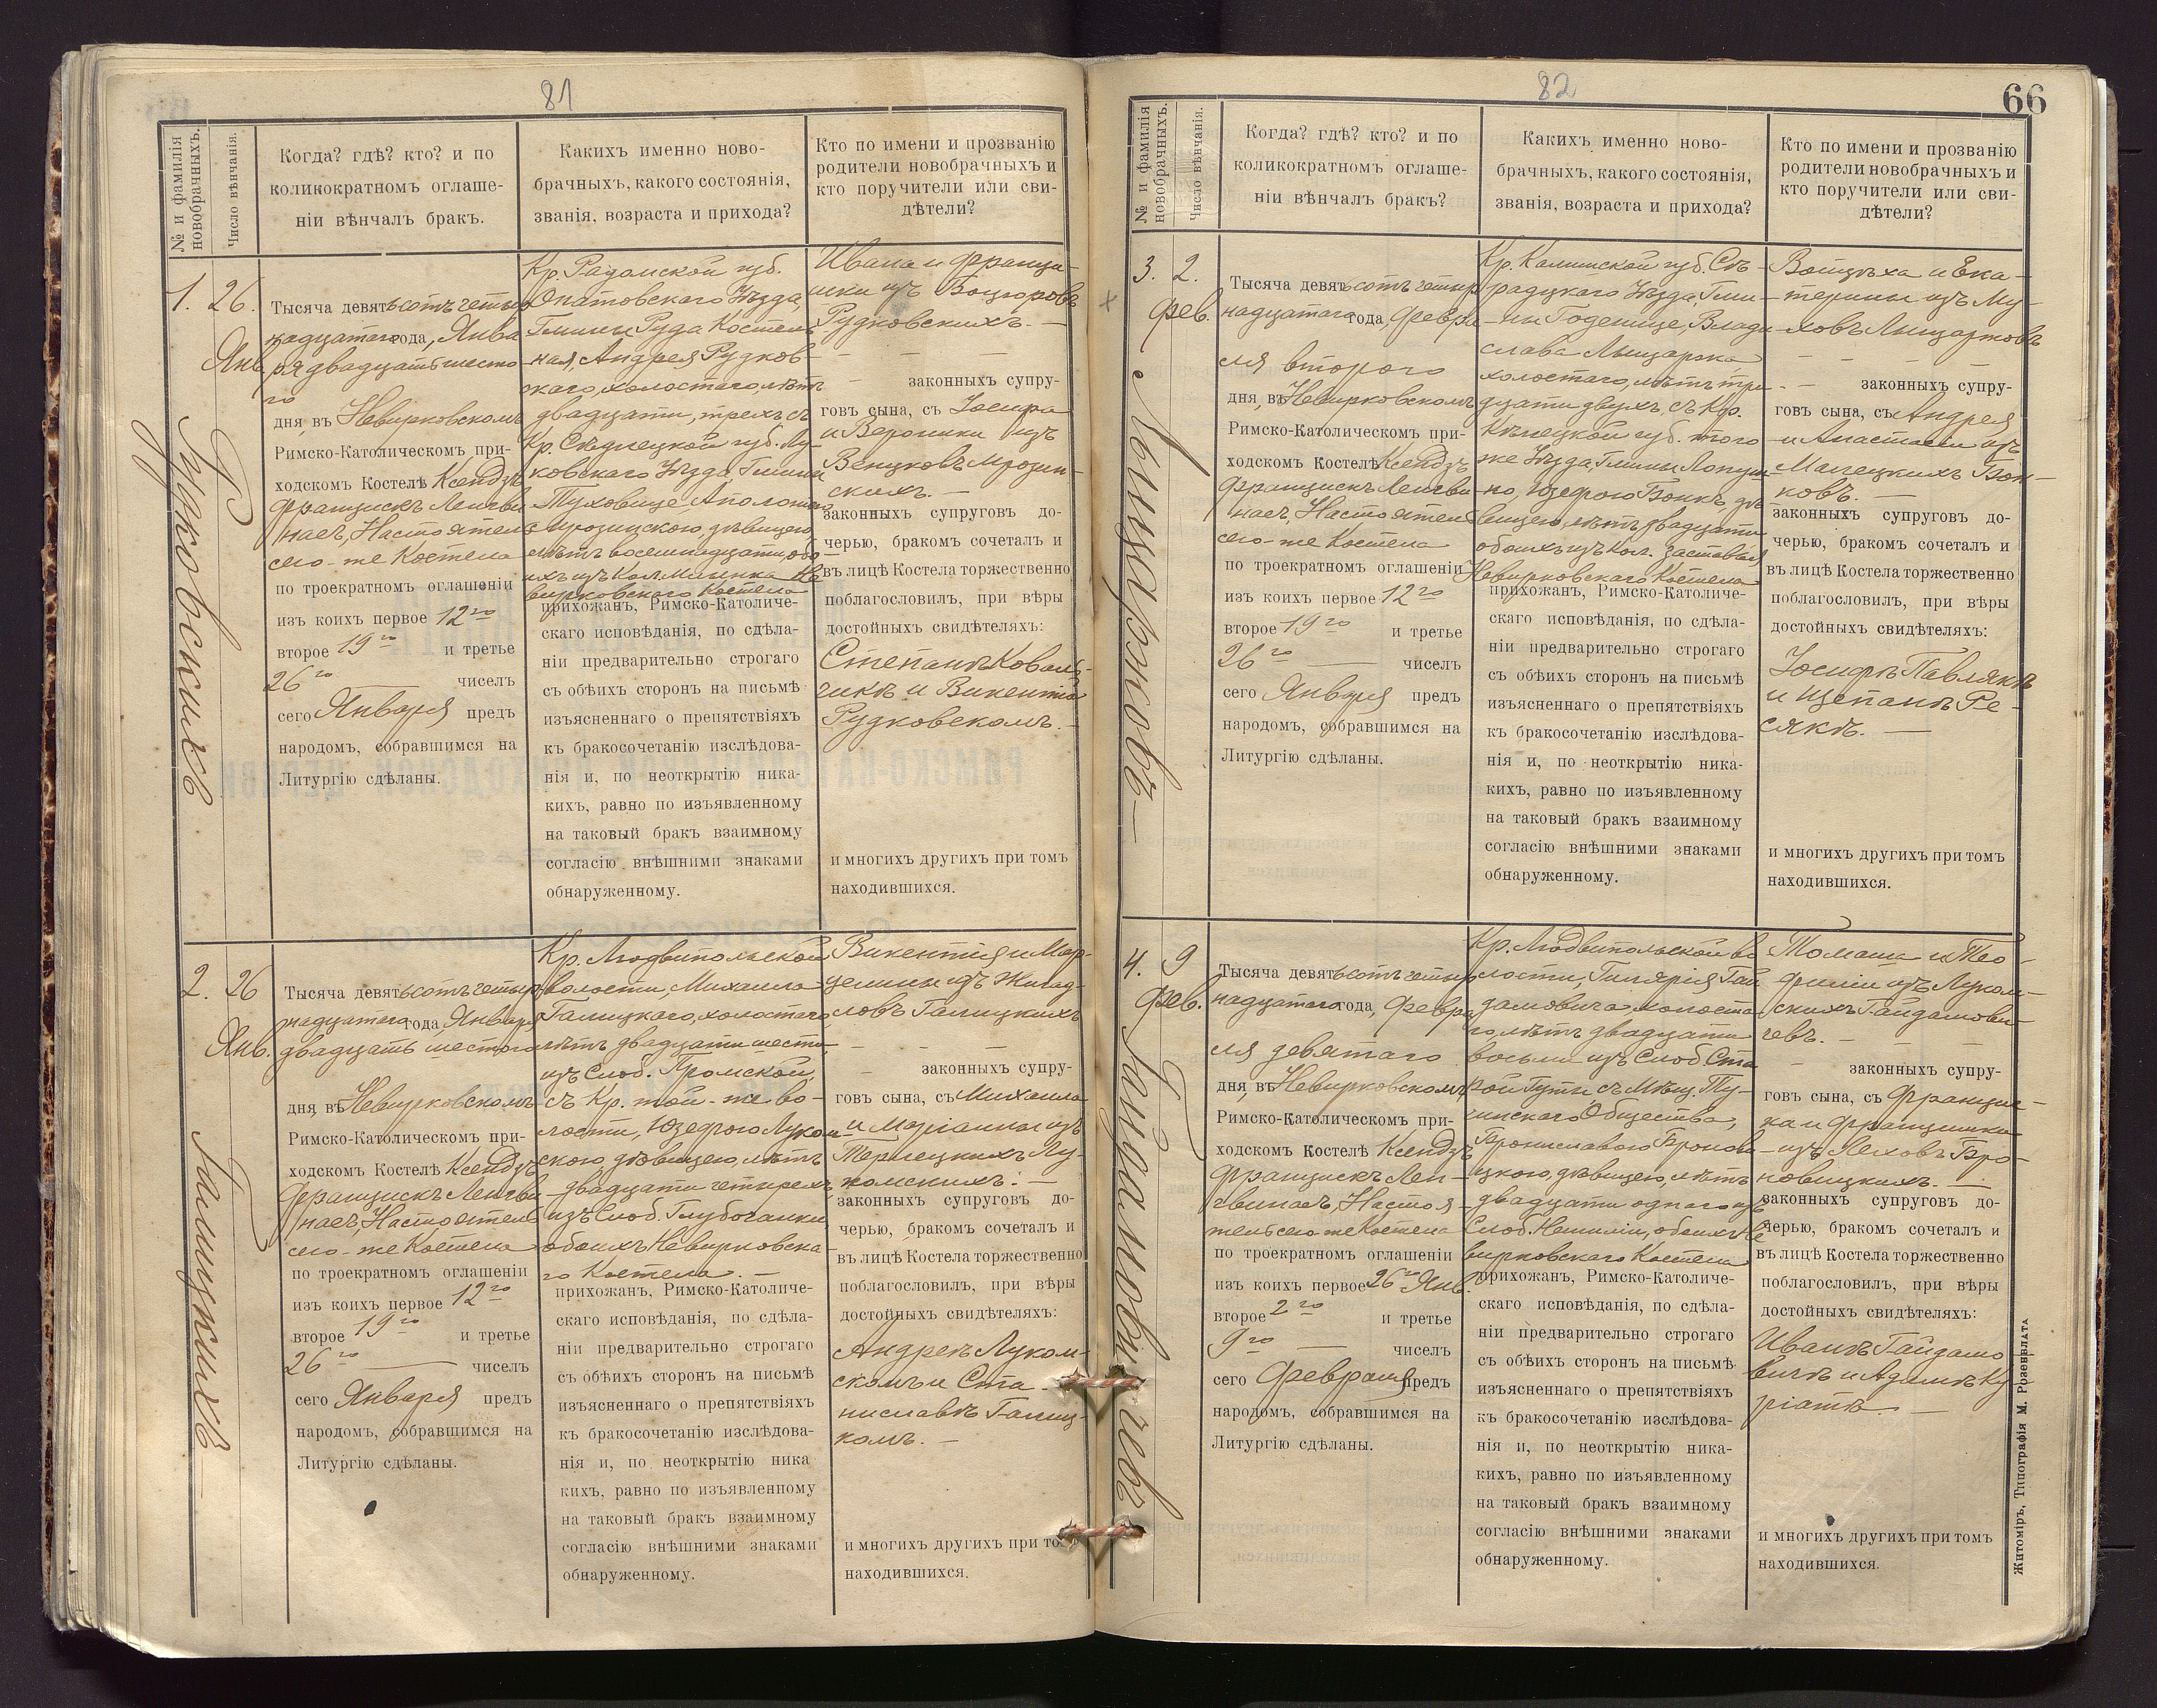 81
№ и фамилія новобрачныхъ.
Число вѣнчанія.
Когда? гдѣ? кто? и по
коликократномъ оглаше-
ніи вѣнчалъ бракъ.
Каких­ъ именно ново-
брачныхъ, какого состоянія,
званія, возраста и прихода?
Кто по имени и прозванію
родители новобрачныхъ и
кто поручители или сви-
дѣтели?
1.
26.
Янв.
Рудковскихъ
Тысяча девятьсотъ четыр
надцатаго года, Янва
ря двадцать шесто
го
дня, въ Невирковскомъ
Римско-Католическомъ при-
ходскомъ Костелѣ Ксендзъ
Францискъ Ленгви
наев, Настоятель
сего-же Костела
по троекратномъ оглашеніи
изъ коихъ первое 12го
второе 19го и третье
26го чиселъ
сего Января предъ
народомъ, собравшимся на
Литургію сдѣланы.
Кр. Радомской губ.
Опатовскаго Уѣзда,
Гмины Руда Костель
ная, Андрея Рудков
скаго, холостаго, лѣтъ
двадцати трехъ съ
Кр. Сѣдлецкой губ. Лу
ковскаго Уѣзда, Гмины
Туховице, Аполонiею
Мрозинского, дѣвицею,
лѣтъ восемнадцати, обо
ихъ изъ Кол. Не
вирковскаго Костела
прихожанъ, Римско-Католиче-
скаго исповѣданія, по сдѣла-
ніи предварительно строгаго
съ обѣихъ сторонъ на письмѣ
изъясненнаго о препятствіяхъ
къ бракосочетанію изслѣдова-
нія и, по неоткрытію ника-
кихъ, равно по изъявленному
на таковый бракъ взаимному
согласію внѣшними знаками
обнаруженному.
Ивана и Франци-
шки изъ
Рудковскихъ. —
законныхъ супру-
говъ сына, съ Іосифа
и Вероники изъ
Мрозин-
скихъ. —
законныхъ супруговъ до-
черью, бракомъ сочеталъ и
въ лицѣ Костела торжественно
поблагословилъ, при вѣры
достойныхъ свидѣтеляхъ:
Степанѣ Коваль-
чикѣ и Викентіѣ
Рудковскомъ. —
и многихъ другихъ при томъ
находившихся.
2.
26
Янв.
Галицкихъ
Тысяча девятьсотъ четыр
надцатаго года Января
двадцать шестого
дня, въ Невирковскомъ
Римско-Католическомъ при-
ходскомъ Костелѣ Ксендзъ
Францискъ Ленгви
наев, Настоятель
сего-же Костела
по троекратномъ оглашеніи
изъ коихъ первое 12го
второе 19го и третье
26го — чиселъ
сего Января предъ
народомъ, собравшимся на
Литургію сдѣланы.
Кр. Людвипольской
волости, Михаила
Галицкаго, холостаго,
лѣтъ двадцати шести,
изъ Слоб. Промской,
съ Кр. той-же во-
лости, Юзефою Луком
ского дѣвицею, лѣтъ
двадцати четырехъ
изъ Слоб. Глубочанки
обоихъ Невирковска
го Костела. —
прихожанъ, Римско-Католиче-
скаго исповѣданія, по сдѣла-
ніи предварительно строгаго
съ обѣихъ сторонъ на письмѣ
изъясненнаго о препятствіяхъ
къ бракосочетанію изслѣдова-
нія и, по неоткрытію ника
кихъ, равно по изъявленному
на таковый бракъ взаимному
согласію внѣшними знаками
обнаруженному.
Викентія и Мар-
целины изъ Жигад-
ловъ Галицкихъ
законныхъ супру-
говъ сына, съ Михаила
и Маріанны изъ
Терлецкихъ Лу-
комскихъ. —
законныхъ супруговъ до-
черью, бракомъ сочеталъ и
въ лицѣ Костела торжественно
поблагословилъ, при вѣры
достойныхъ свидѣтеляхъ:
Андреѣ Луком-
скомъ и Ста-
ниславѣ Галиц-
комъ. —
и многихъ другихъ при то
находившихся.
82
66
№ и фамилія новобрачныхъ.
Число вѣнчанія.
Когда? гдѣ? кто? и по
коликократномъ оглаше-
ніи вѣнчалъ бракъ?
Какихъ именно ново-
брачныхъ, какого состоянія,
званія, возраста и прихода?
Кто по имени и прозванію
родители новобрачныхъ и
кто поручители или сви-
дѣтели?
3.
2.
Фев.
Лыщарковъ
Тысяча девятьсотъ четыр
надцатаго года, Февра
ля второго
дня, въ Невирковскомъ
Римско-Католическомъ при-
ходскомъ Костелѣ Ксендзъ
Францискъ Ленгви
наев, Настоятель
сего-же Костела
по троекратномъ оглашеніи
изъ коихъ первое 12го
второе 19го и третье
26го — чиселъ
сего Января предъ
народомъ, собравшимся на
Литургію сдѣланы.
Кр. Калишской губ. Сѣ-
радзкаго Уѣзда, Гми-
ны Годенище, Влади
слава Лыщарка
холостаго, лѣтъ три
дцати двухъ, съ Кр.
Кѣлецкой губ. того
же Уѣзда, Гмины Лопуш
но, Юзефою Бонкъ, дѣ
вицею, лѣтъ двадцати
обоихъ изъ Кол. Заставья
Невирковскаго Костела
прихожанъ, Римско-Католиче-
скаго исповѣданія, по сдѣла-
ніи предварительно строгаго
съ обѣихъ сторонъ на письмѣ
изъясненнаго о препятствіяхъ
къ бракосочетанію изслѣдова-
нія и, по неоткрытію ника-
кихъ, равно по изъявленному
на таковый бракъ взаимному
согласію внѣшними знаками
обнаруженному.
Войцѣха и Ека-
терины изъ Му-
ховъ Лыщарковъ
законныхъ супру-
говъ сына, съ Андрея
и Анастасіи изъ
Малецкихъ Бон-
ковъ. —
законныхъ супруговъ до-
черью, бракомъ сочеталъ и
въ лицѣ Костела торжественно
поблагословилъ, при вѣры
достойныхъ свидѣтеляхъ:
Іосифѣ Павлякѣ
и Щепанѣ Ре-
сякѣ. —
и многихъ другихъ при томъ
находившихся.
4.
9
Фев.
Гайдамовичевъ
Тысяча девятьсотъ четыр
надцатаго года, Февра
ля девятаго
дня, въ Невирковскомъ
Римско-Католическомъ при-
ходскомъ Костелѣ Ксендзъ
Францискъ Лен-
гвинаев, Настоя-
тель сего же Костела
по троекратномъ оглашеніи
изъ коихъ первое 26го Янв.
второе 2го и третье
9го — чиселъ
сего Февраля предъ
народомъ, собравшимся на
Литургію сдѣланы.
Кр. Людвипольской во
лости, Гилярія Гай
дамовича, холоста
го, лѣтъ двадцати
восьми изъ Слоб. Ста
рой Гуты съ Мѣщ. Ту-
чинскаго Общества,
Брониславою Бронови
цкого, дѣвицею, лѣтъ
двадцати одного изъ
Слоб. Нетили, обоихъ Не
вирковскаго Костела
прихожанъ, Римско-Католиче-
скаго исповѣданія, по сдѣла-
ніи предварительно строгаго
съ обѣихъ сторонъ на письмѣ
изъясненнаго о препятствіяхъ
къ бракосочетанію изслѣдова-
нія и, по неоткрытію ника-
кихъ, равно по изъявленному
на таковый бракъ взаимному
согласію внѣшними знаками
обнаруженному.
Томаша и Тео-
филіи изъ Луком-
скихъ Гайдамови-
чевъ. —
законныхъ супру-
говъ сына, съ Франциш-
ка и Францишки
изъ Леховъ Бро-
новицкихъ. —
законныхъ супруговъ до-
черью, бракомъ сочеталъ и
въ лицѣ Костела торжественно
поблагословилъ, при вѣры
достойныхъ свидѣтеляхъ:
Иванѣ Гайдамо
вичѣ и Адамѣ Ку
ріатѣ. —
и многихъ другихъ при томъ
находившихся.
Житоміръ, Типографія М. Розенблата